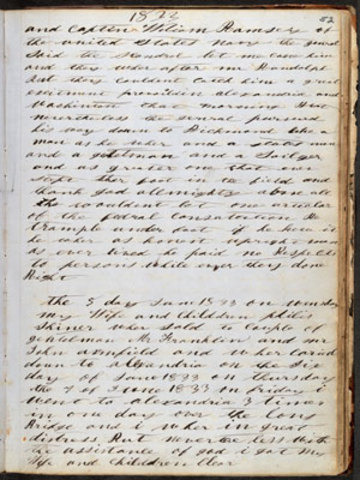 1833
52
and Captin Wiliam Ramsers of
the united States Navy the genral
Said the Scoundrel let me case him
and they wher after mr Randolph
But they couldent catch him a grait
excitment prevaildin alexandria and
Washington that morning But
nevertheless the genral pursued
his way down to Richmond like a
man as he wher and a states man
and a gentelman and a Soilger
and as greater one that ever
stept the foot in the field and
thank god allmighty above all
he wouldent let one article
of the fedral Consatution He
trample under foot if he knew it
he wher as honest upright man
as ever lived he paid no Respects
to persons while every they done
Right
the 5 day June 1833 on wensday
my Wife and children philis
Shiner wher sold to couple of
gentelman Mr Franklin and mr
John armfield and wher caried
down to alexandria on the Six
day of June 1833 on thursday
the 7 of June 1833 on friday i
went to alexandria 3 times
in one day over the Long
Bridge and i wher in great
distress But never the less with
the assistance of god i got My
Wife and Childdren Clear